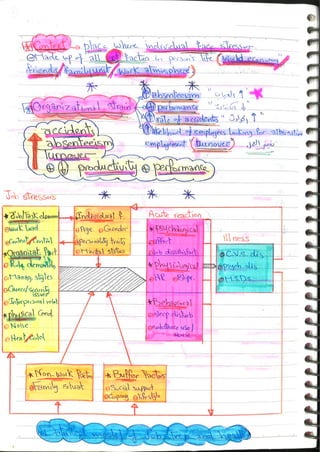 Context → place where individual face stressor
made up of all factor in person's life (world economy
friends, family unit, work atmosphere)
Organizational strain
absenteeism
performance
rate of accidents
likelihood of employees looking for alternative
employment (turnover)
accidents
absenteeism
turnover
productivity performance
Job stressors
Job/Task deman
work load
Control
Organizat. Fact
Role demands
Manag. styles
Career/security
issue
Interpersonal relat
physical Cond
Noise
Heat/cold
Individual F.
Age Gender
personality traits
Marital status
Acute reaction
Psychological
Affect
Job dissatisfact
Physiological
HR
Behavioral
sleep disturb
substance use/
Illness
C.V.S. dis
psych. dis
M.S.Ds
Non-work Factor
Family situat
Buffer Factors
Social support
Coping lifestyle